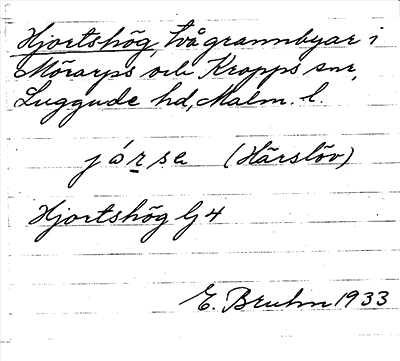 Hjortshög, två grannbyar i
Mörarps och Kropps snr,
Luggude hd, Malm. l.
járse (Härslöv)
Hjortshög lj 4
E. Bruhn 1933